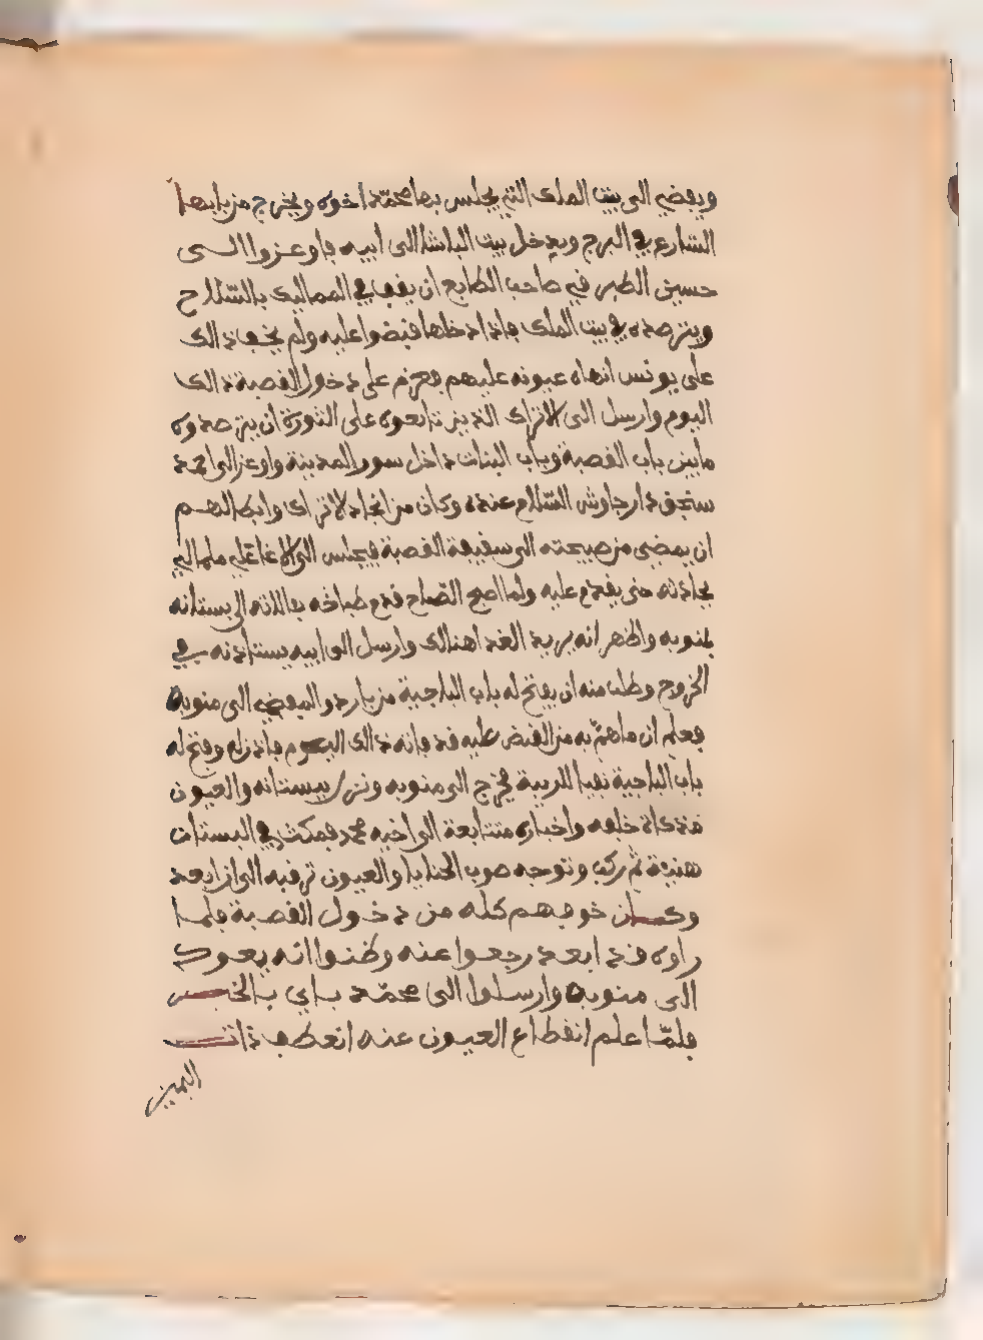 ويفضي الى بيت الملك التي يجلس بها محمّد اخوه ويخرج من بابها
الشارع في البرج ويدخل بيت الباشا الى ابيه فاوعزوا الى
حسين الطبرقي صاحب الطابع ان يقف في المماليك بالسّلاح
ويترصده في بيت الملك فاذا دخلها قبضوا عليه ولم يخف ذالك
على يونس انهاه عيونه عليهم فعزم على دخول القصبة ذالك
اليوم وارسل الى الاتراك الذين تابعوه على الثورة ان يترصدوه
مابين باب القصبة وباب البنات داخل سور المدينة واوعز الى احمد
سنجق دار جاوش السّلام عنده وكان من انجاد الاتراك وابطالهم
ان يمضي من صبيحته الى سقيفة القصبة فيجلس الى الاغا علي
يحادثه حتى يقدم عليه ولما اصبح الصّباح قدم طباخه بعالاته الى بستانه
بمنوبه واظهر انه يريد الغدا هنالك وارسل الى ابيه يستاذنه في
الخروج وطلب منه ان يفتح له باب الباجية من باردو اليفضي الى منوبه
فعلم ان ماهمّ به من القبض عليه قد فاته ذالك اليوم فاذن له وفتح له
باب الباجية نفيا للريبة فخرج الى منوبه ونزل ببستانه والعيون
متداركة خلفه واخباره متتابعة الى اخيه محمد فمكث في البستان
هنيئة ثم ركب وتوجه صوب الحنايا والعيون ترقبه الى ان ابعد
وكان خوفهم كله من دخول القصبة فلما
راوه قد ابعد رجعوا عنه وظنوا انه يعود
الى منوبه وارسلوا الى محمّد باي بالخبر
فلمّا علم انقطاع العيون عنه انعطف ذات
اليمين